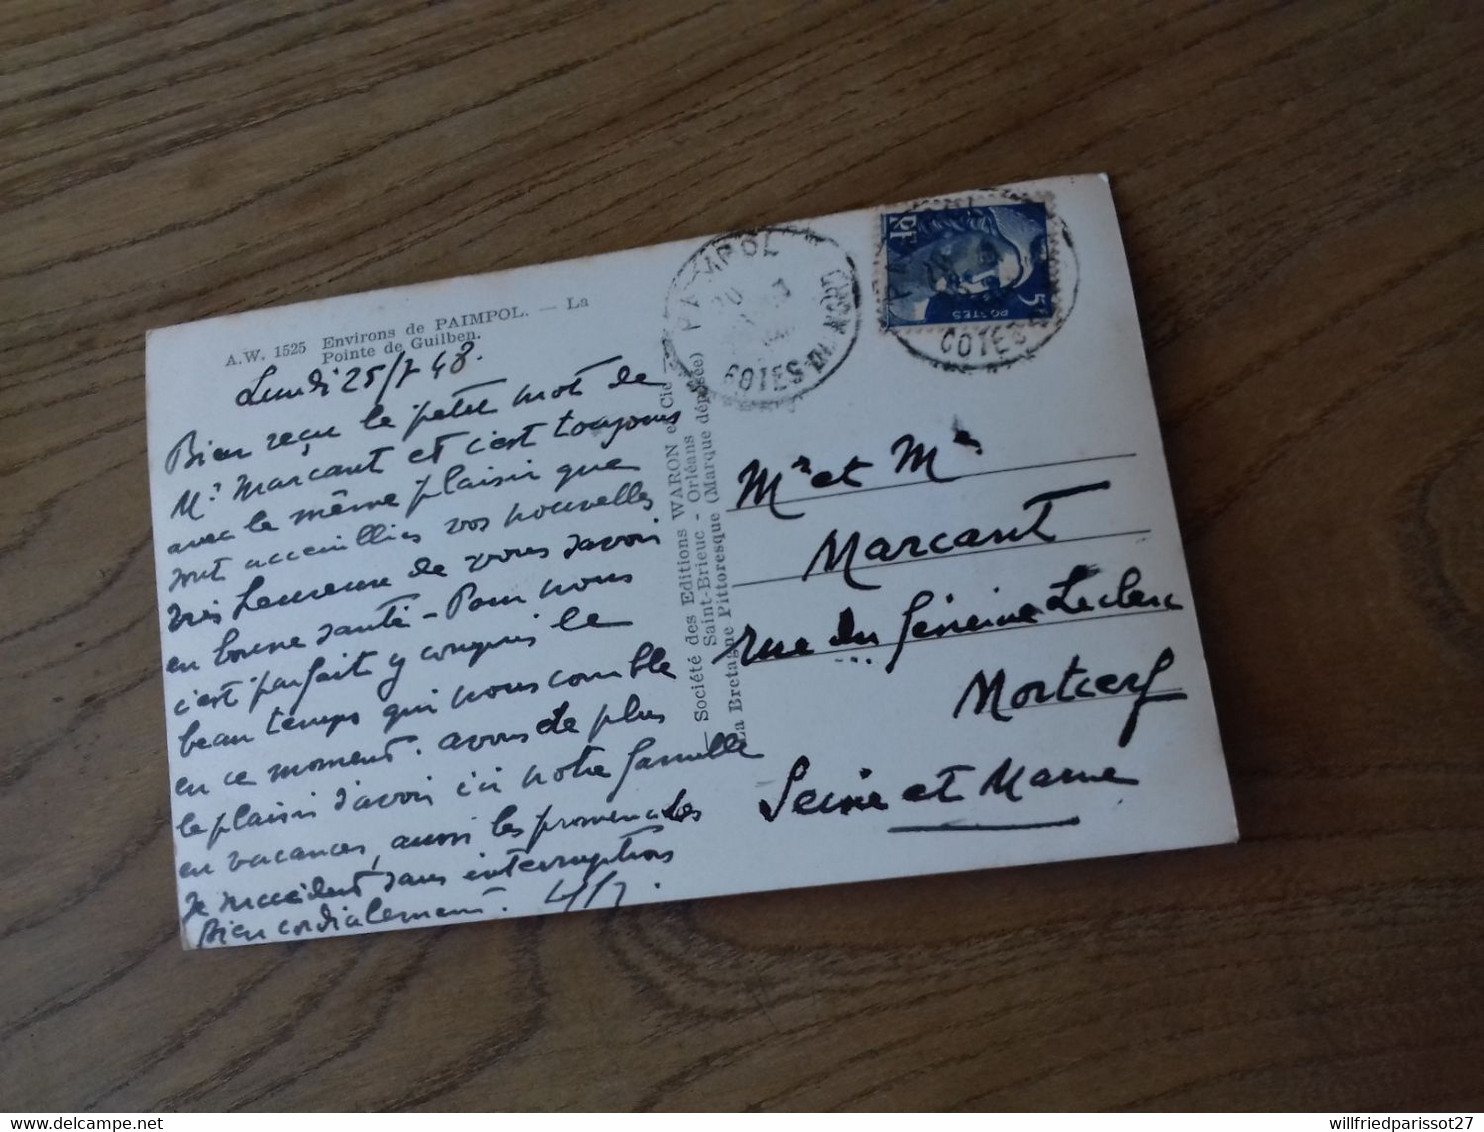 A.W. 1525 Environs de PAIMPOL. — La
Pointe de Guilben.
Lundi 25/7 48.
Bien reçu le petit mot de
Mr Marcant et c'est toujours
avec le même plaisir que
sont accueillies vos nouvelles
très heureux de vous savoir
en bonne santé - Pour nous
c'est parfait y compris le
beau temps qui nous comble
en ce moment. avons de plus
le plaisir d'avoir ici notre famille
en vacances, aussi les promenades
se succèdent sans interruption
Bien cordialement.
— Société des Editions WARON et Cie —
Saint-Brieuc - Orléans
La Bretagne Pittoresque (Marque déposée)
PAIMPOL
COTES DU NORD
RF
POSTES
5
COTES
Mr et Me
Marcant
rue du Général Leclerc
Mortcerf
Seine et Marne
delcampe.net
willfriedparissot27